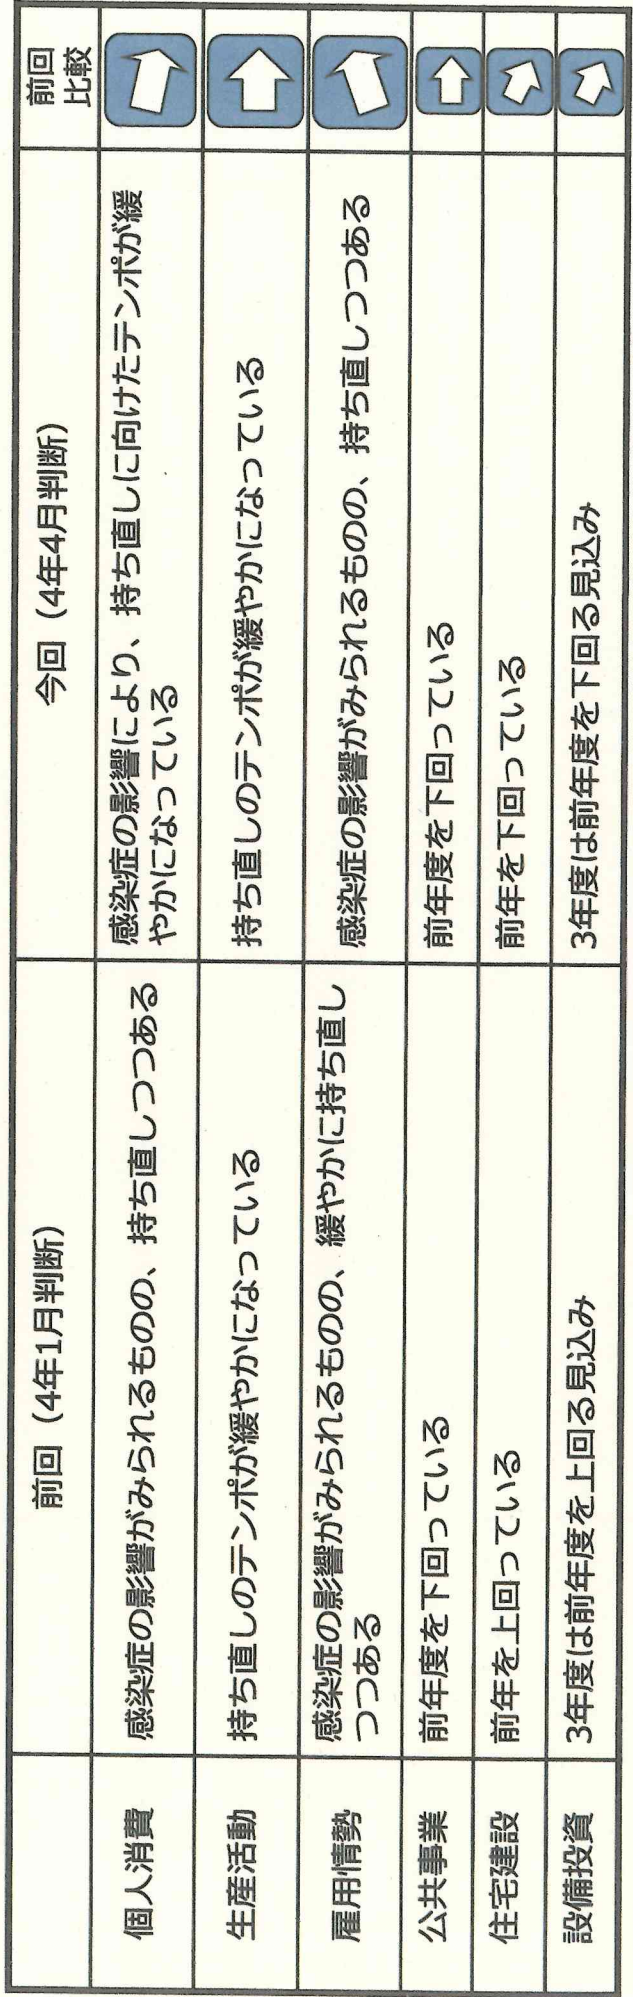 前回（4年1月判断）
今回（4年4月判断）
前回
比較
個人消費
感染症の影響がみられるものの、持ち直しつつある
感染症の影響により、持ち直しに向けたテンポが緩
やかになっている
生産活動
持ち直しのテンポが緩やかになっている
持ち直しのテンポが緩やかになっている
雇用情勢
感染症の影響がみられるものの、緩やかに持ち直し
つつある
感染症の影響がみられるものの、持ち直しつつある
公共事業
前年度を下回っている
前年度を下回っている
住宅建設
前年を上回っている
前年を下回っている
設備投資
3年度は前年度を上回る見込み
3年度は前年度を下回る見込み